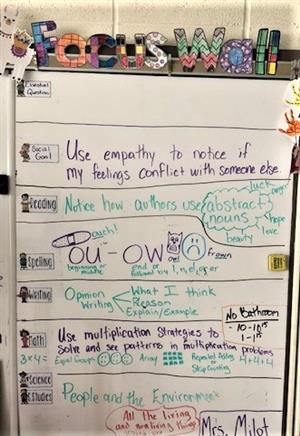 Focus Wall
Essential
Question
Social
Goal
Use empathy to notice if
my feelings conflict with someone else.
Reading
Notice how authors use abstract
nouns
luck
anger
hope
love
beauty
Spelling
ouch!
OU - OW
owl
frown
beginning or
middle
end or
followed by l, n, el, er
Writing
Opinion
Writing
What I think
Reason
Explain/Example
No Bathroom
-10-10:15
1-1:15
Math
Use multiplication strategies to
solve and see patterns in multiplication problems
3x4=
Equal Groups
Array
Repeated Adding
or
Skip Counting
4+4+4
Science
S.Studies
People and the Environment
All the living
and nonliving things
Mrs. Milot